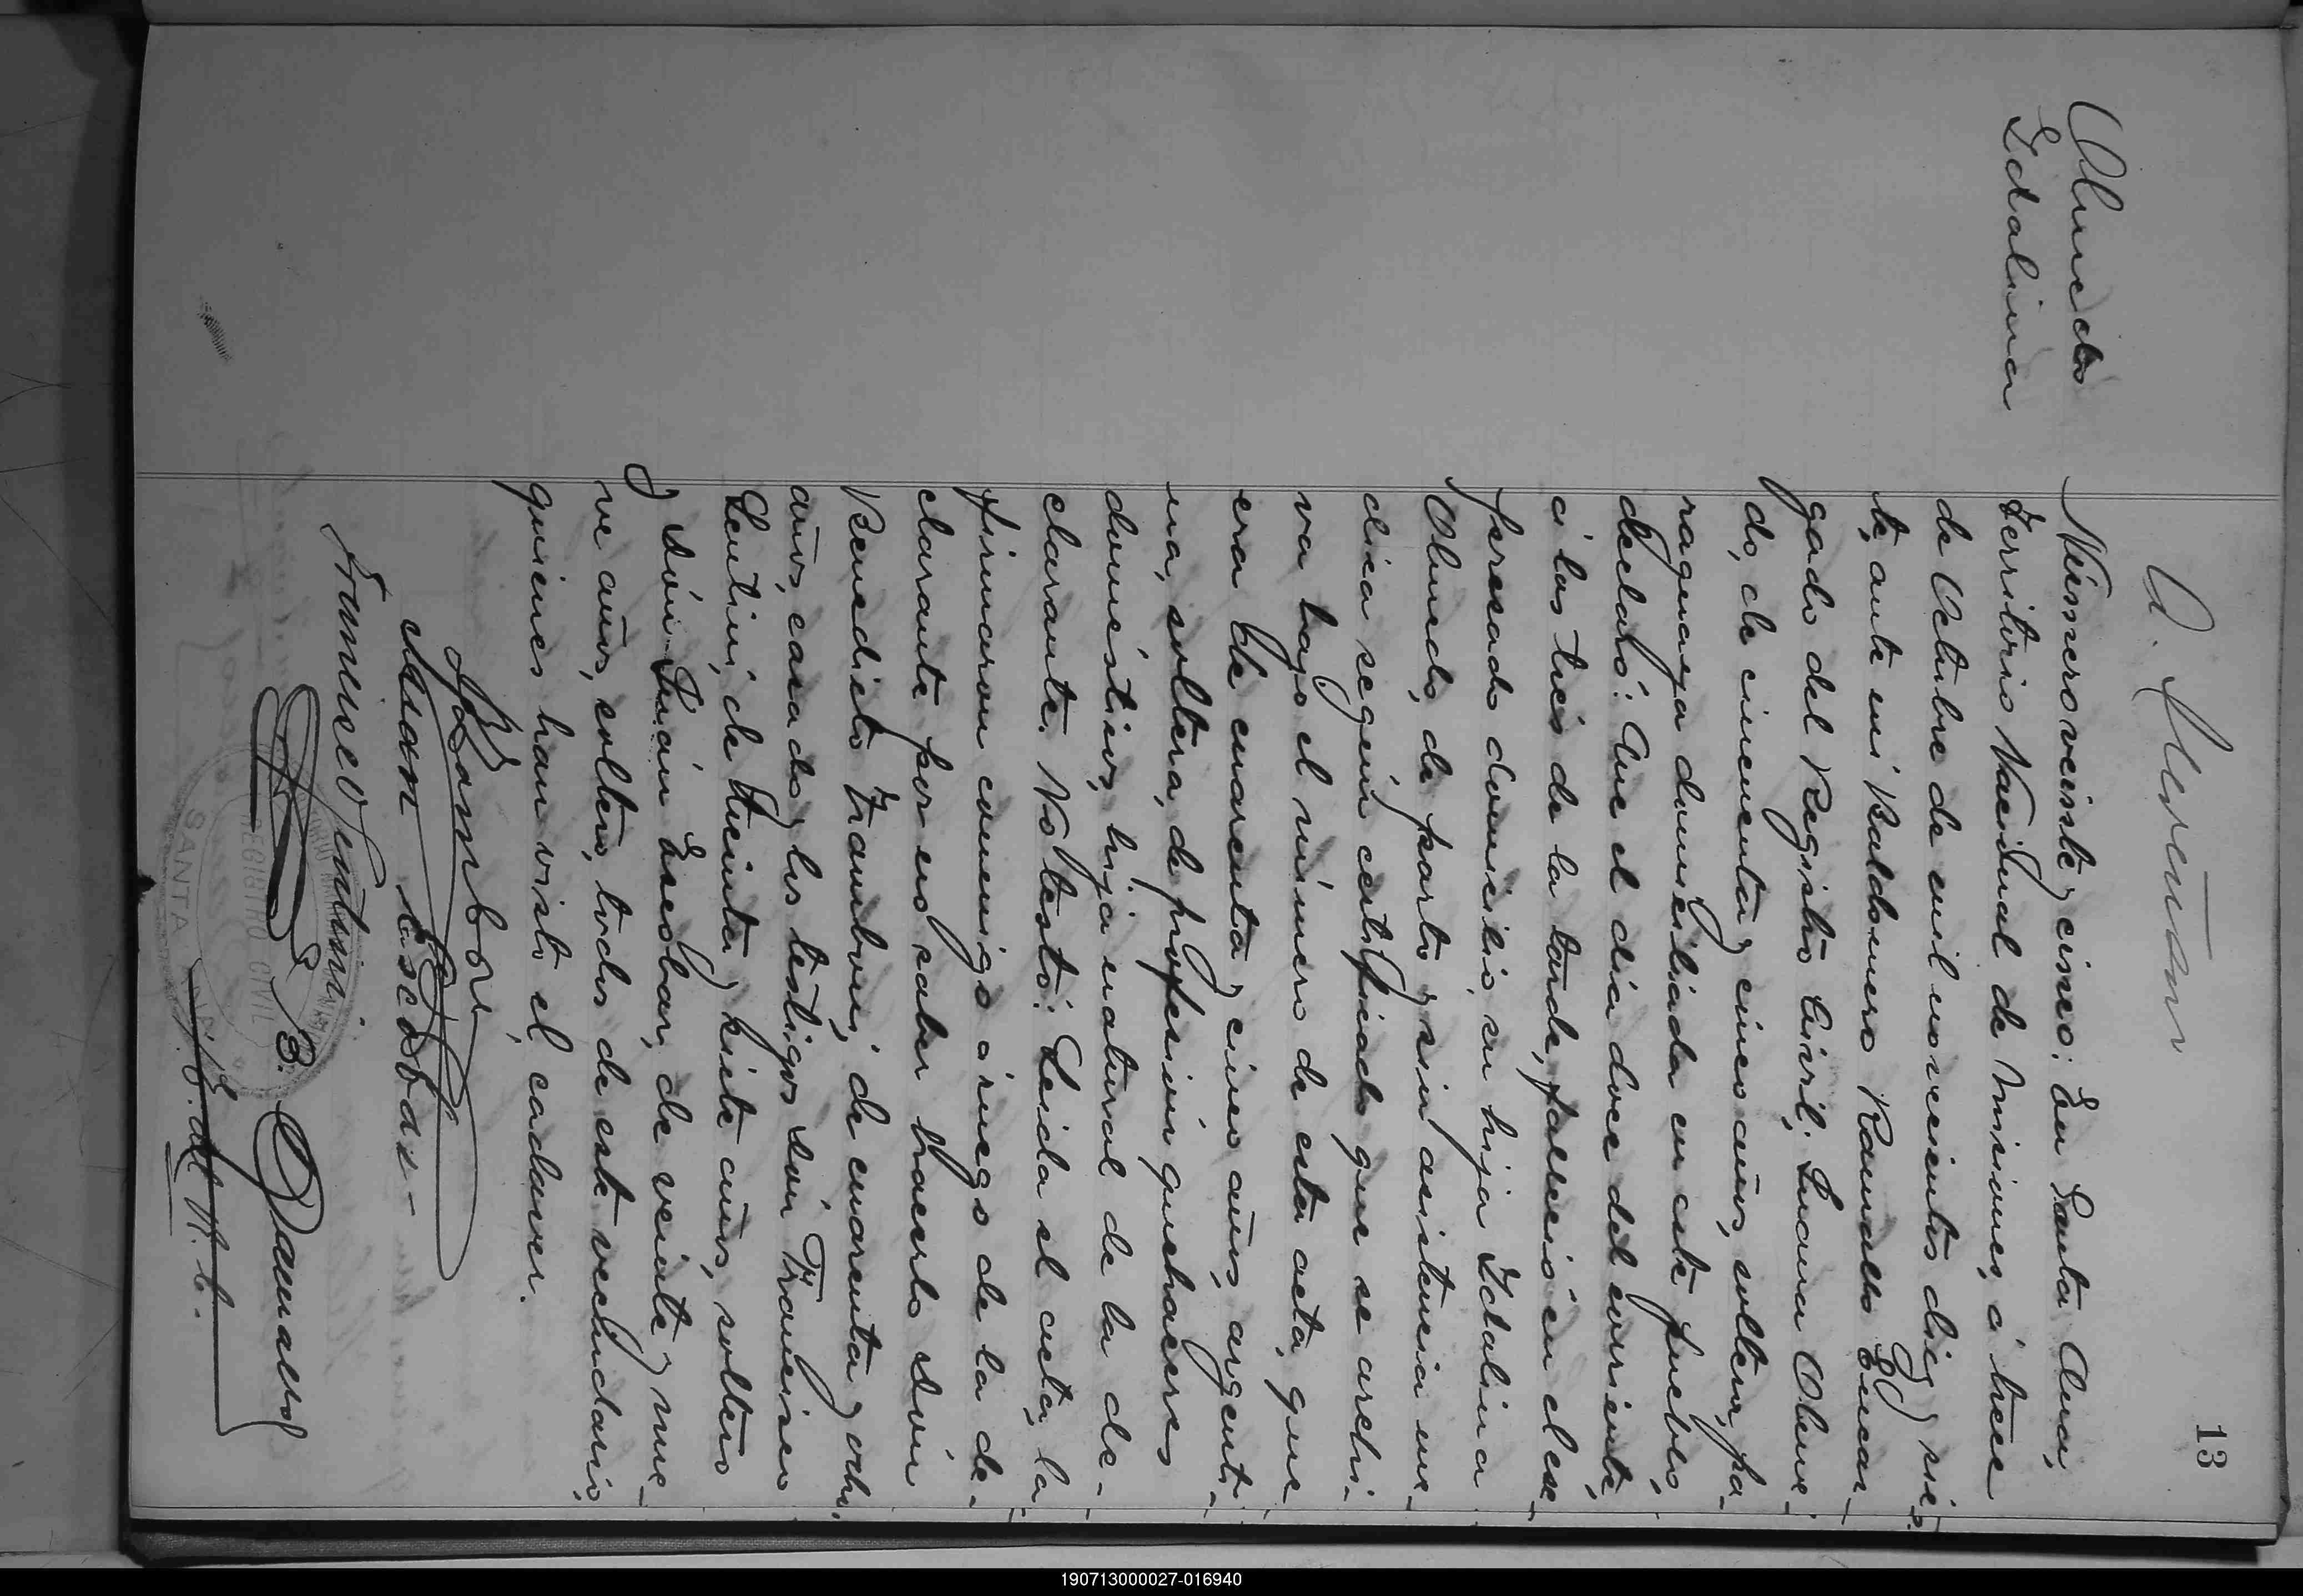 13
Olmedo
Idalina
Número veinte y cinco: En Santa Ana,
Territorio Nacional de Misiones, á trece
de Octubre de mil novecientos diez y sie-
te, ante mí Baldomero Ramallo Encar-
gado del Registro Civil; Juana Olme-
do, de cincuenta y cinco años, soltera, pa-
raguaya domiciliada en este pueblo,
declaró: Que el día doce del corriente,
á las tres de la tarde, falleció en el ex-
presado domicilio, su hija Idalina
Olmedo, de parto y sin asistencia mé-
dica según certificado que se archi-
va bajo el número de esta acta, que
era de cuarenta y cinco años, argenti-
na, soltera, de profesión quehaceres
domésticos, hija natural de la de-
clarante. No testó. Leida el acta, la
firmaron conmigo á ruego de la de-
clarante por no saber hacerlo Dón
Benedicto Zrambori, de cuarenta y ocho
años, casado y los testigos Dón Francisco
Lentini, de treinta y siete años, soltero
y Dón Juán Escobar, de veinte y nue-
ve años, soltero, todos de este vecindario,
quienes han visto el cadaver.
Juan Escobar-
Francisco Lentini
B. Ramallo
E. del R. C.
REGISTRO CIVIL
SANTA ANA
190713000027-016940